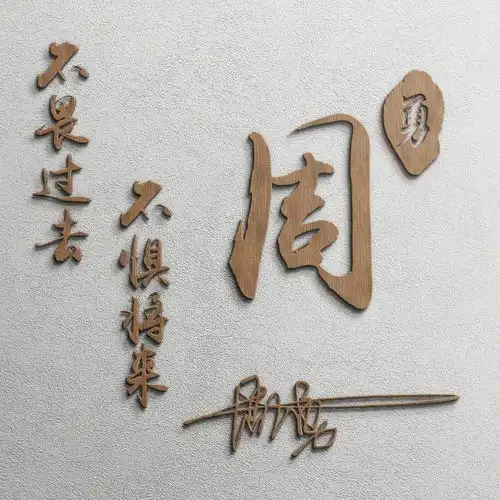 不畏过去
不惧将来
周
勇